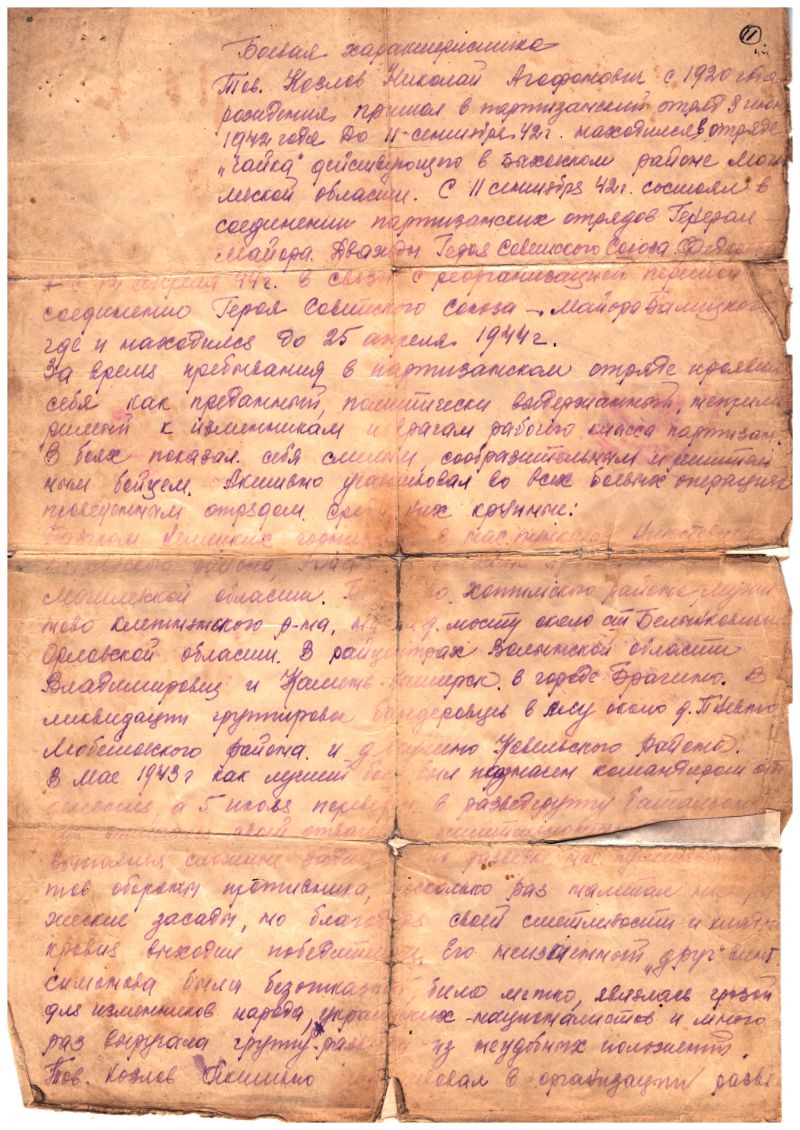 11
Боевая характеристика
Тов. Козлов Николай Агафонович с 1920 года
рождения, пришел в партизанский отряд 8 июн
1942 года до 11 сентября 42 г. находился в отряде
"Чайка" действующего в Быховском районе Моги
левской области. С 11 сентября 42 г. состоял в
соединении партизанских отрядов Генерал
Майора. Дважды Героя Советского Союза.
апреля 44 г. в связи с реорганизацией
соединению Героя Советского Союза - Майора Балицкого
где и находился до 25 апреля 1944 г.
За время пребывания в партизанском отряде проявил
себя как преданный, политически выдержанный, неприми
римый к изменникам и врагам рабочего класса партизан.
В боях показал себя смелым сообразительным и
ным бойцем. Активно участвовал во всех боевых операциях
проведенным отрядом среди них крупные:
района
Могилевской области. Хотимского района,
р-на, мосту около ст
Орловской области. В райцентрах Волынской области
Владимировец и Камень-Каширск. в городе Брагино. В
ликвидации группировок бандеровцев в лесу около д.
Любешовского района. и д. района.
В Мае 1943 г как лучший был назначен командиром от
деления, а 5 июля переведен в разведгруппу батальона
своей
Выполняя сложные
тов обороны противника, несколько раз налетал на вра
жеские засады, но благодаря своей сметливости и хладно
кровия выходил победителем. Его неизменный "друг" винт
симонова была безотказной, било метко, являлась грозой
для изменников народа, украинских-националистов и много
раз выручала группу из неудобных положений.
Тов. Козлов Активно в организации разве